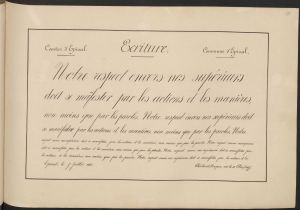 Canton d'Epinal Ecriture. Commune d'Epinal
Notre respect envers nos supérieurs
doit se manifester par les actions et les manières,
non moins que par les paroles. Notre respect envers nos supérieurs doit
se manifester par les actions et les manières, non moins que par les paroles. Notre
respect envers nos supérieurs doit se manifester par les actions et les manières, non moins que par les paroles. Notre respect envers nos supérieurs doit
se manifester par les actions et les manières, non moins que par les paroles. Notre respect envers nos supérieurs doit se manifester par les
actions et les manières, non moins que par les paroles. Notre respect envers nos supérieurs doit se manifester par les actions et les
Epinal, le 7 Juillet